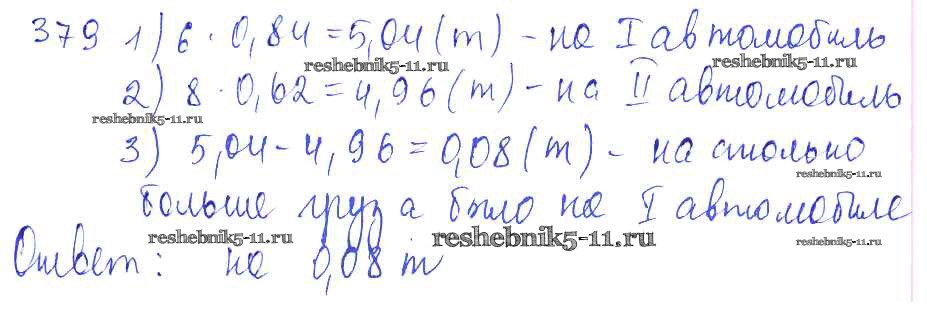 379 1) 6 · 0,84 = 5,04 (т) - на I автомобиль
reshebnik5-11.ru reshebnik5-11.ru
2) 8 · 0,62 = 4,96 (т) - на II автомобиль
reshebnik5-11.ru
3) 5,04 - 4,96 = 0,08 (т) - на столько
reshebnik5-11.ru
больше груза было на I автомобиле
reshebnik5-11.ru reshebnik5-11.ru reshebnik5-11.ru
Ответ: на 0,08 т